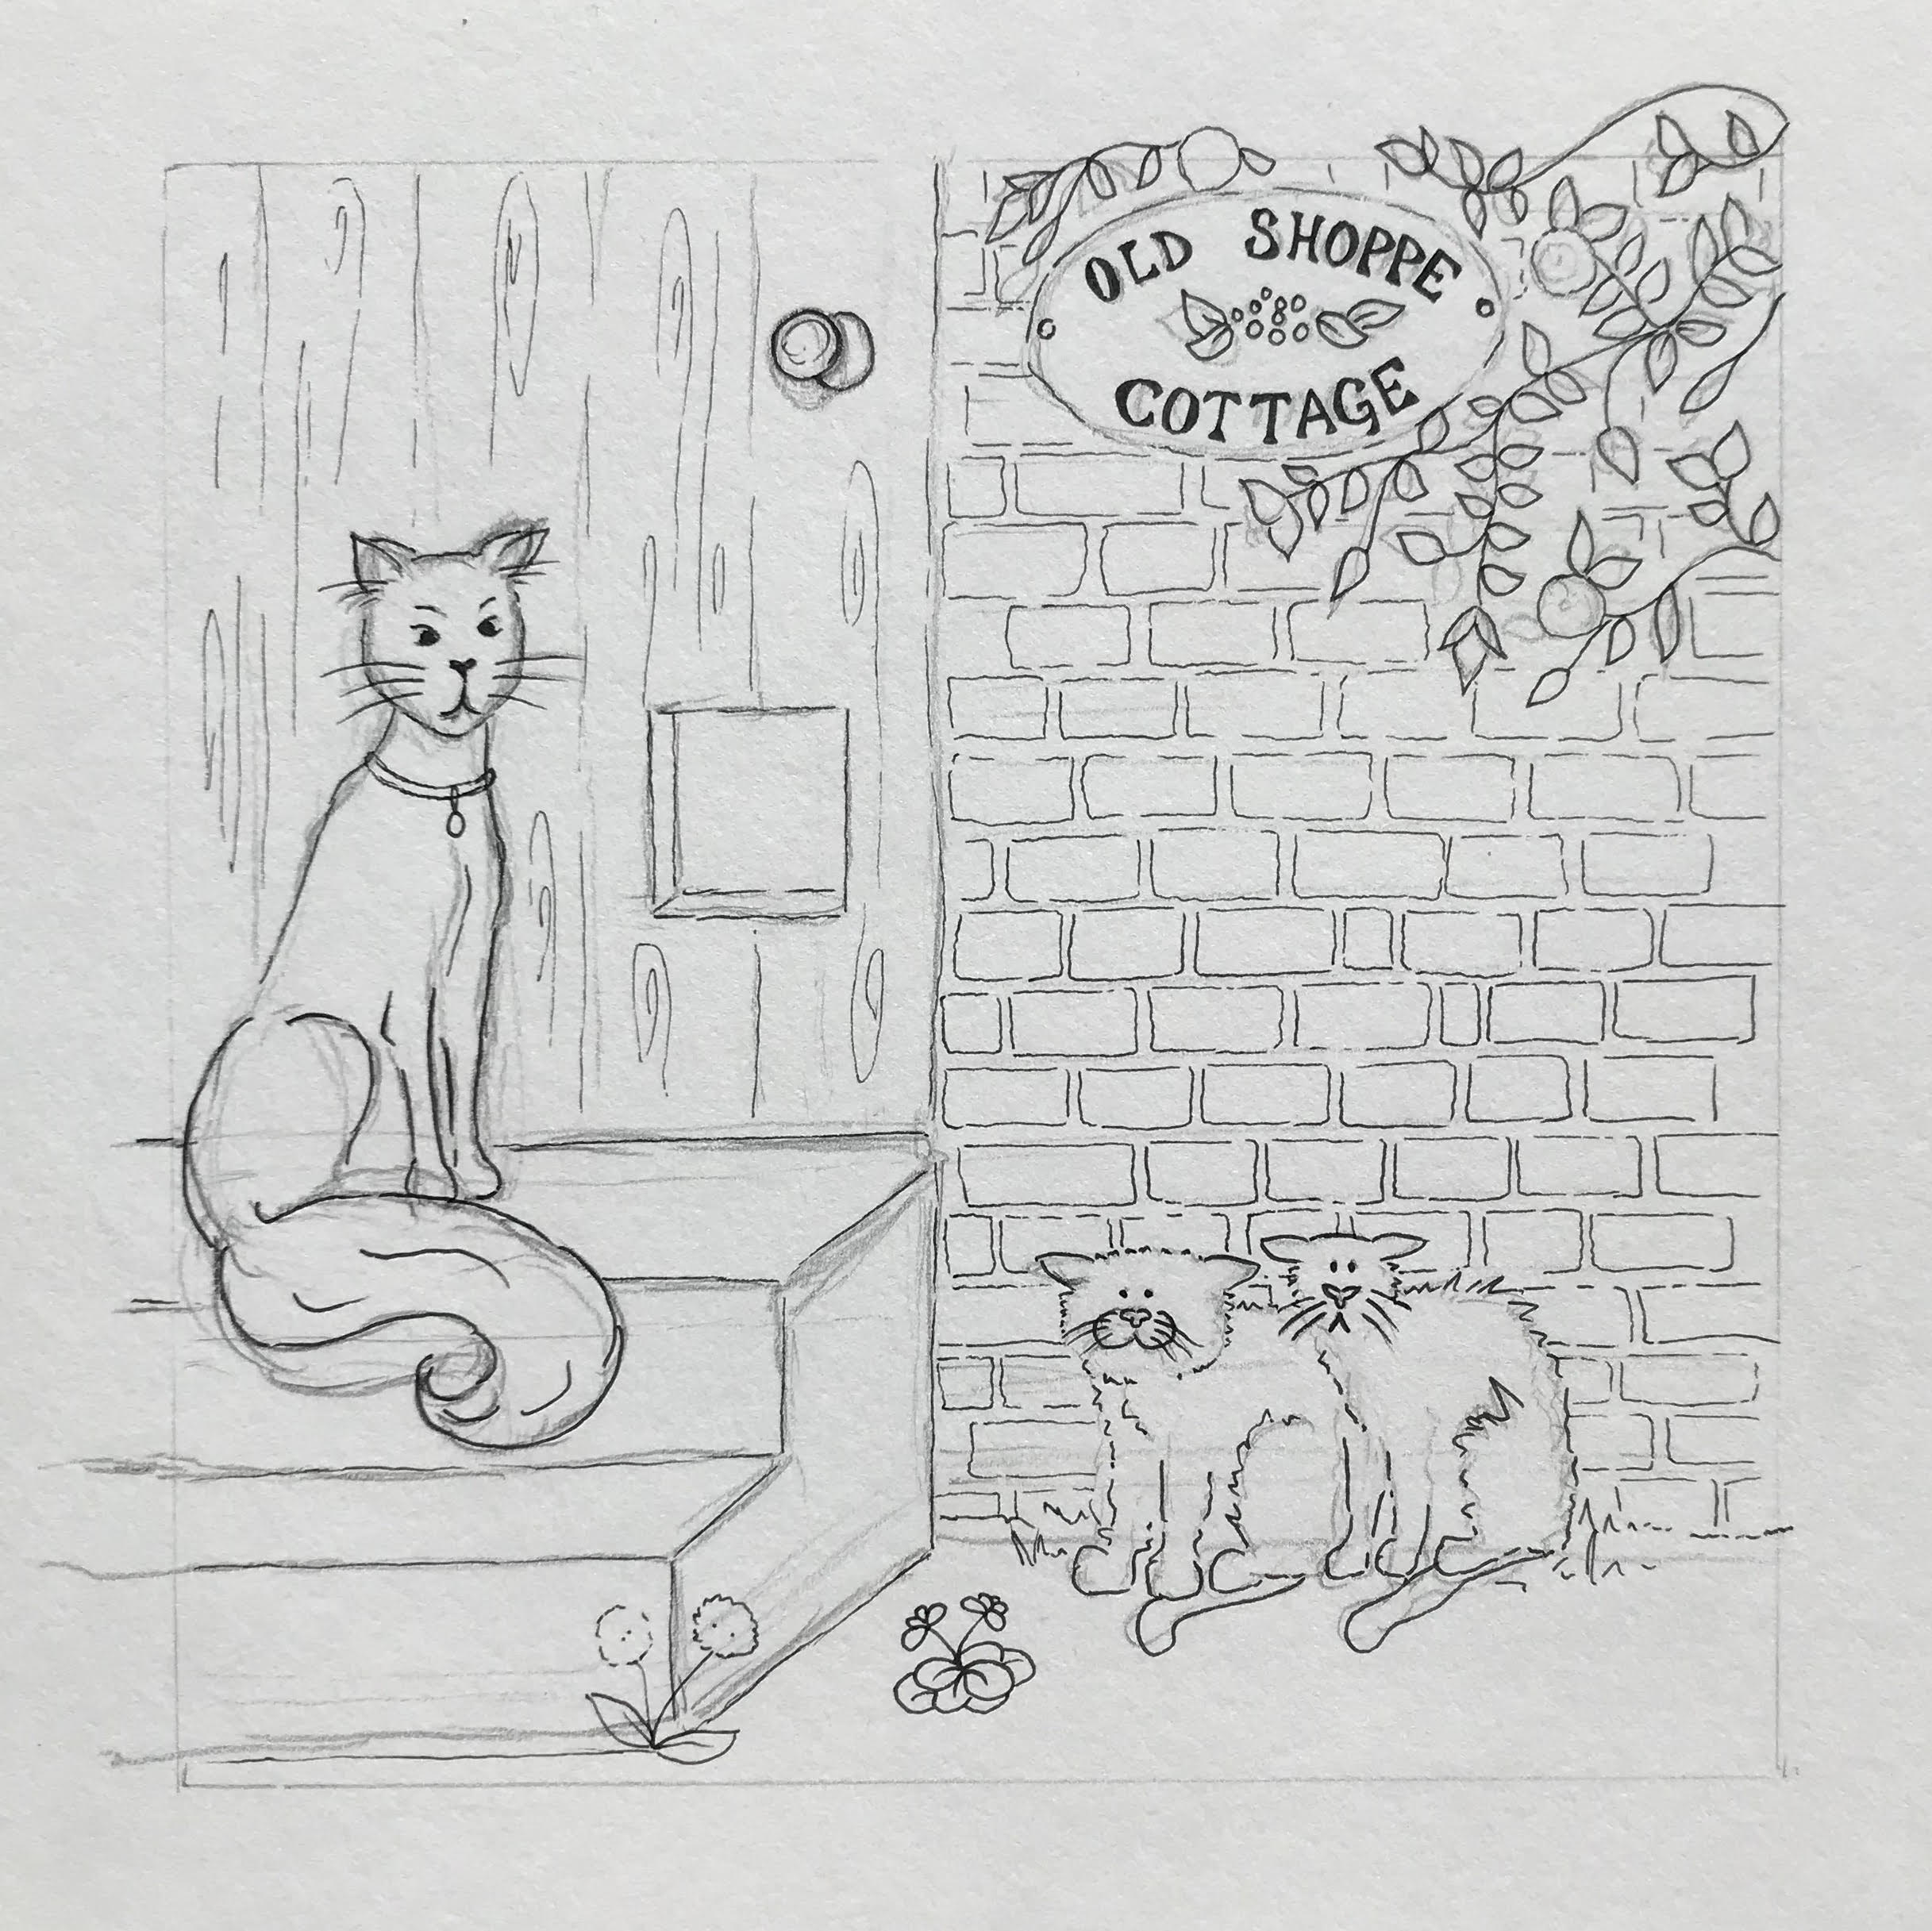 OLD SHOPPE
COTTAGE